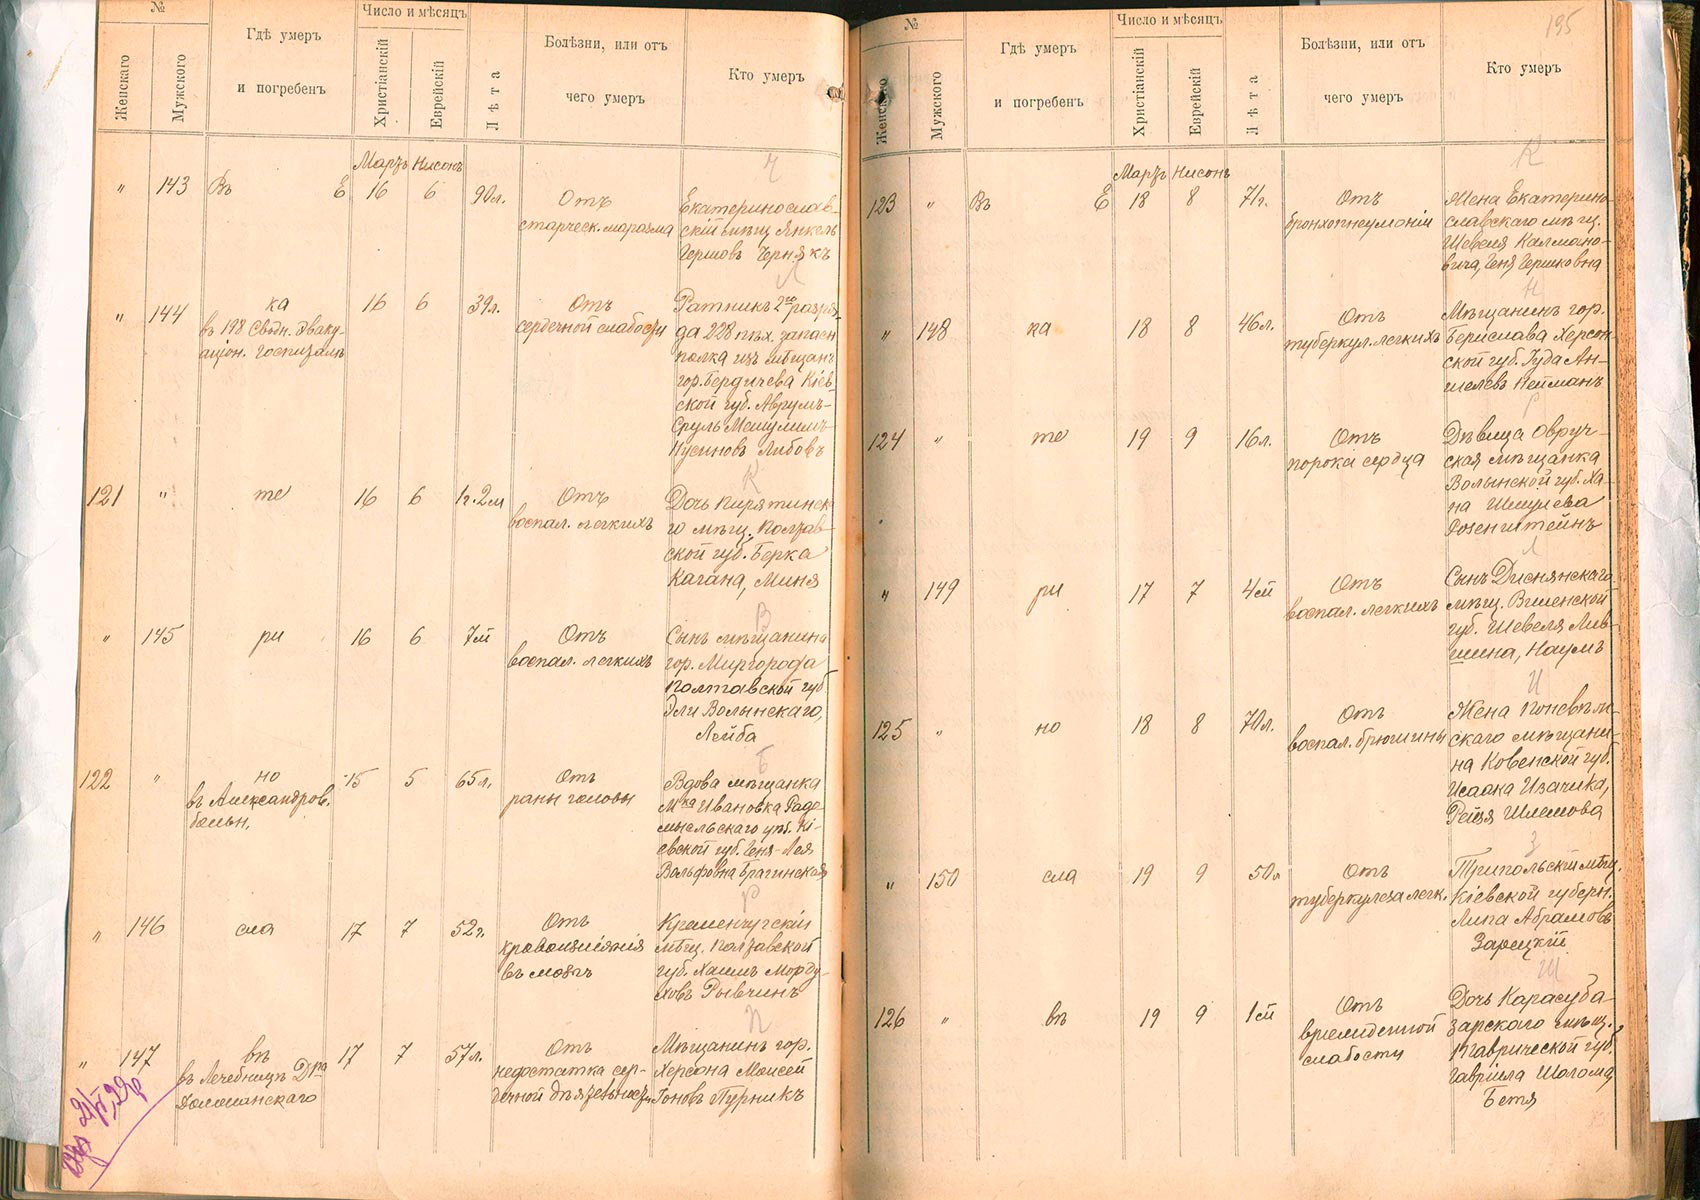 №
Женскаго
Мужского
Гдѣ умеръ
и погребенъ
Число и мѣсяцъ
Христіанскій
Еврейскій
Лѣта
Болѣзни, или отъ
чего умеръ
Кто умеръ
Мартъ Нисонъ
Ч
" 143 Въ Е 16 6 90л.
Отъ
старческ. маразма
Екатеринослав-
скій мѣщ. Янкель
Гершовъ Чернякъ
Л
" 144 ка 16 6 39л.
въ 198 Сводн. Эваку-
аціон. госпиталѣ
Отъ
сердечной слабости
Ратникъ 2го разря-
да 228 пѣх. запасн
полка изъ мѣщанъ
гор. Бердичева Кіев-
ской губ. Аврумъ-
Сруль Мешулимъ-
Нусиновъ Либовъ
К
121 " те 16 6 1г. 2м
Отъ
воспал. легкихъ
Дочь Пирятинска-
го мѣщ. Полтав-
ской губ. Берка
Кагана, Миня
В
" 145 ри 16 6 7м
Отъ
воспал. легкихъ
Сынъ мѣщанина
гор. Миргорода
Полтавской губ
Эли Волынскаго,
Лейба
Б
122 " но 15 5 65л.
въ Александров.
больн.
Отъ
раны головы
Вдова мѣщанка
Мка Ивановка Радо-
мысльскаго уѣз. Кі-
евской губ. Геня-Лея
Вольфовна Брагинская
Р
" 146 сла 17 7 52г.
Отъ
кровоизліянія
въ мозгъ
Кременчугскій
мѣщ. Полтавской
губ. Хаимъ Морду-
ховъ Рывчинъ
П
" 147 вѣ 17 7 57л.
въ Лечебницѣ Дра
Отъ
недостатка сер-
дечной дѣятельности
Мѣщанинъ гор.
Херсона Моисей
Іоновъ Пурникъ
195
№
Женскаго
Мужского
Гдѣ умеръ
и погребенъ
Число и мѣсяцъ
Христіанскій
Еврейскій
Лѣта
Болѣзни, или отъ
чего умеръ
Кто умеръ
Мартъ Нисонъ
К
123 " Въ Е 18 8 71г.
Отъ
бронхопнеумоніи
Жена Екатерино-
славскаго мѣщ.
Шевеля Калмано-
вича, Геня Гершковна
Н
" 148 ка 18 8 46л.
Отъ
туберкул. легкихъ
Мѣщанинъ гор.
Берислава Херсон-
ской губ. Іуда Ан-
шелевъ Нейманъ
Р
124 " те 19 9 16л.
Отъ
порока сердца
Дѣвица Овруч-
ская мѣщанка
Волынской губ. Ха-
на Шмулева
Розенштейнъ
Л
" 149 ри 17 7 4м
Отъ
воспал. легкихъ
Сынъ Диснянскаго
мѣщ. Виленской
губ. Шевеля Лив-
шина, Наумъ
И
125 " но 18 8 70л.
Отъ
воспал. брюшины
Жена Поневѣж-
скаго мѣщани-
на Ковенской губ.
Исаака Изачика,
Рейзя Шлемова
З
" 150 сла 19 9 50л
Отъ
туберкулеза легк.
Трипольскій мѣщ.
Кіевской губерн.
Липа Абрамовъ
Зарецкій
Ш
126 " вѣ 19 9 1м
Отъ
врожденной
слабости
Дочь Карасуба-
зарскаго мѣщ.
Таврической губ.
Гавріила Шолома,
Бетя